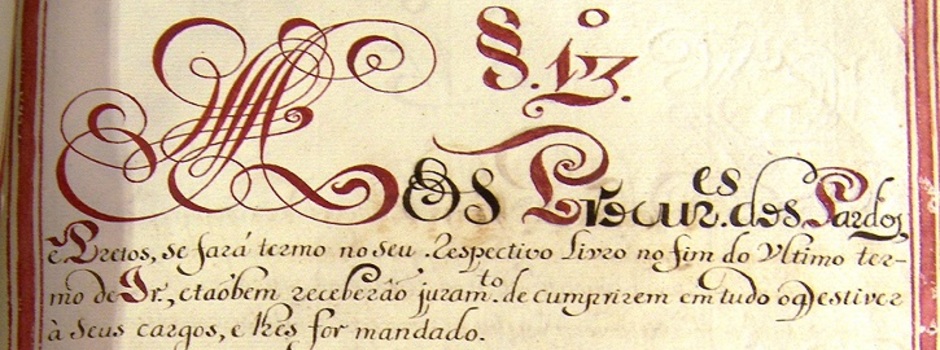 §. 13.º
Aos Procur.es dos Pardos,
e Pretos, se fará termo no seu Respectivo Livro no fim do Ultimo ter-
mo de Ir., etaóbem receberão juram.to de cumprirem em tudo oq estiver
à Seus cargos, e lhes for mandado.